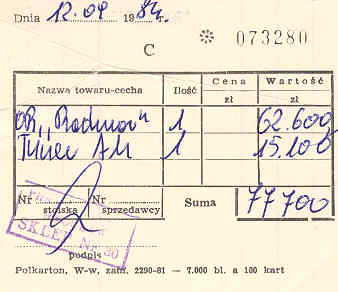 Dnia 12.09 1984r.
C * 073280
Nazwa towaru-cecha Ilość Cena zł Wartość zł
OR „Radmor" 1 62.600
Tuner AM 1 15.100
Nr stoiska Nr sprzedawcy Suma 77700
SKLEP Nr 80
podpis
Polkarton, W-w, zam. 2290-81 — 7.000 bl. a 100 kart